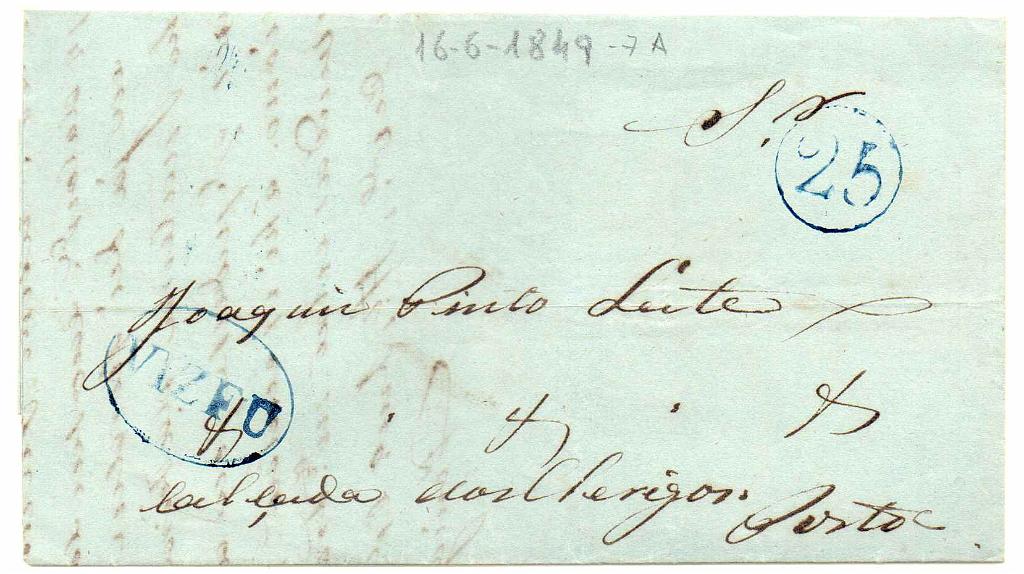 16-6-1849-7A
S.r
25
Joaquin Pinto Leite
VIZEU
& & &
Calçada dos Clerigos.
Porto